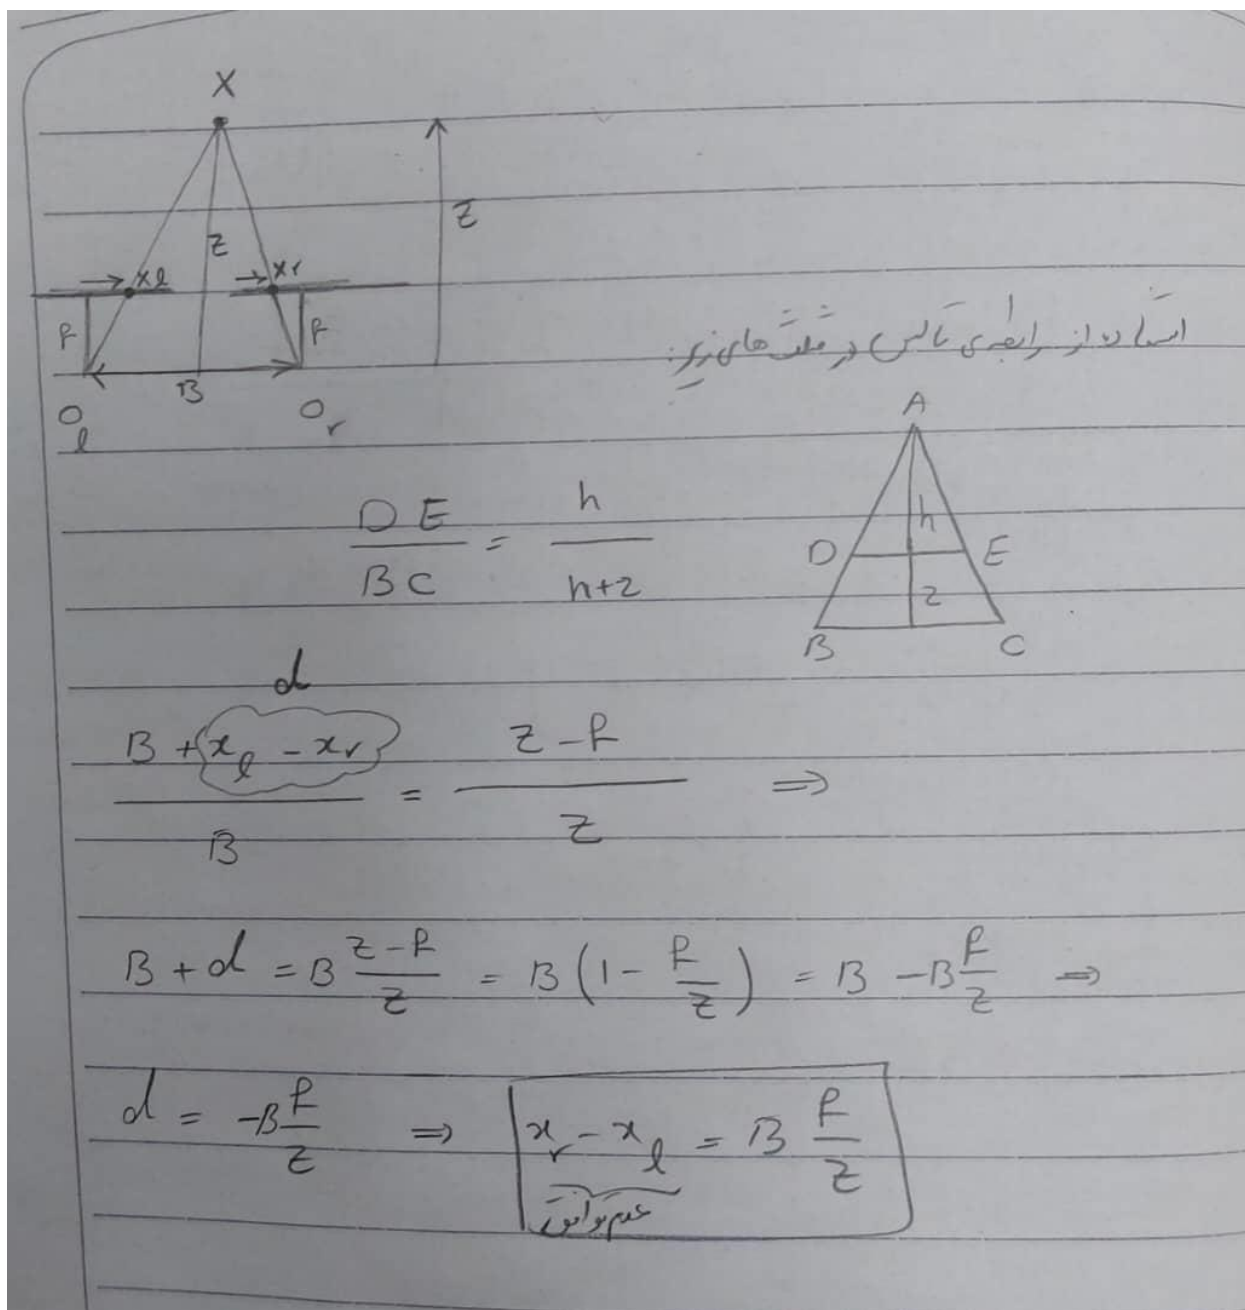 X
Z
Z
xl xr
f f
B
O_l O_r
استفاده از رابطه‌ی تالس در مثلث های زیر:
A
h
D E
z
B C
DE / BC = h / h+z
d
B + (x_l - x_r) / B = Z - f / Z ⇒
B + d = B (Z - f) / Z = B (1 - f/Z) = B - B f/Z ⇒
d = -B f/Z ⇒ x_r - x_l = B f/Z
عدم توافق